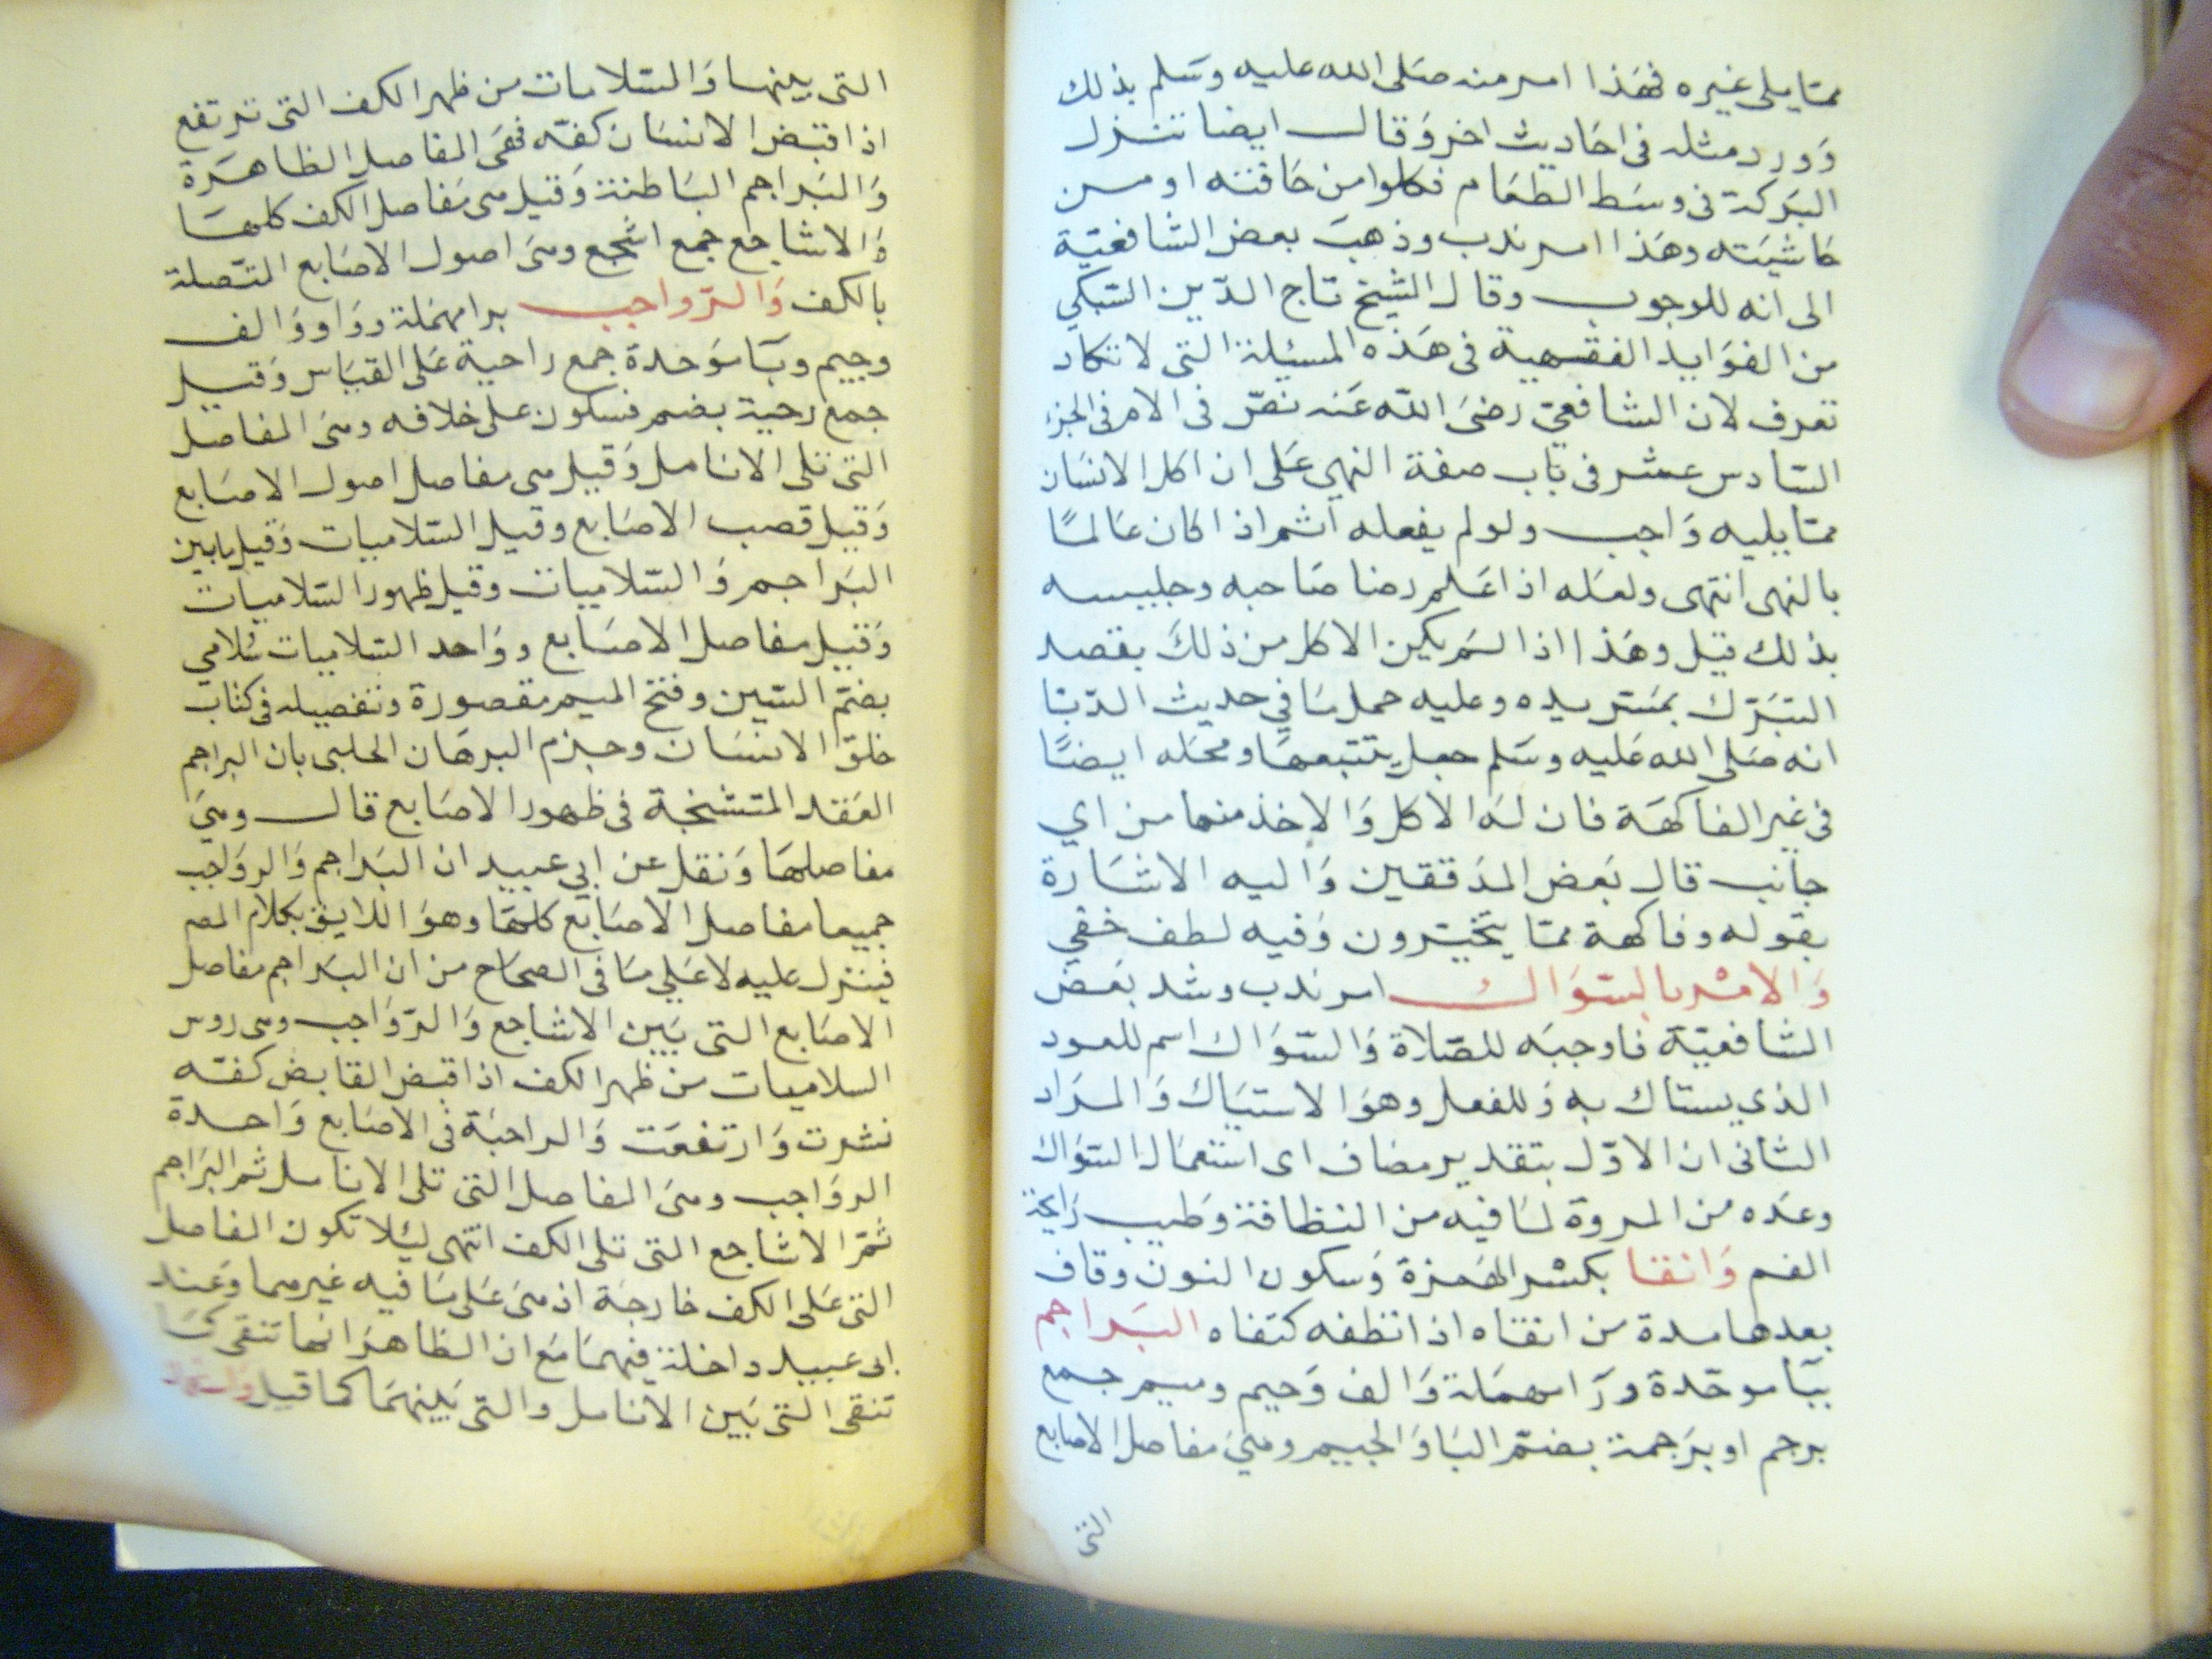 ممّا يلى غيره فهَذا امر منه صَلى الله عليه وسَلم بذلك
وَورد مثله فى احَاديث اخر وَقال ايضا تنزل
البَركة فى وسَط الطعَام فكلوا من حَافته او من
حَاشيَته وهَذا امر ندب وذهبَ بعض الشافعيّة
الى انه للوجوب وقال الشيخ تاج الدّين السّبكي
من الفوَايد الفقهية فى هَذه المسئلة التى لا تكاد
تعرف لان الشافعيّ رضىَ اللّه عَنه نصّ فى الام فى الجزء
السّادس عشر فى بَاب صفة النهى عَلى ان اكل الانسَان
ممّا يليه وَاجب ولو لم يفعله اثم اذا كان عَالمًا
بالنهى انتهى ولعَله اذا عَلم رضا صَاحبه وجليسه
بذلك قيل وهَذا اذا لم يكين الاكل من ذلكَ بقصد
التبَرّك بمسّ يده وعليه حمل مَا في حديث الدّبّا
انه صَلى الله عَليه وسَلم جعل يتتبعهَا ومحَله ايضًا
فى غير الفاكهَة فان لهَ الاكل وَالاخذ منها من اي
جَانب قال بَعض المدَققين وَاليه الاشَارة
بقوله وفاكهة ممّا يتخيّرون وَفيه لطف خفي
وَالامْر بالسّوَاك امر ندب وشد بعَض
الشافعيّة فاوجبَه للصّلاة وَالسّوَاك اسم للعود
الذي يستاك به وَللفعل وهوَ الاستيَاك وَالمرَاد
الثانى ان الاوّل بتقدير مضاف اى استعمَال السّوَاك
وعَده من المروة لمَا فيه من النظافة وَطيب رَايحة
الفم وَانقا بكسْر الهَمزة وَسكون النون وقاف
بعدها مدة من انقاه اذا نظفه كنقاه البَراجم
ببَا موحّدة ورَا مهمَلة وَالف وَجيم وميم جمع
برجم او برَجمة بضمّ البَا وَالجيم وهيَ مفاصل الاصابع
التى
التى بينها وَالسّلامات من ظهر الكف التى ترتفع
اذا قبَض الانسَان كفّه فهَى المفاصل الظاهرَة
وَالبَراجم البَاطنة وَقيل هى مَفاصل الكف كلهَا
وَالاشاجع جمع اشجع وهىَ اصول الاصَابع المتّصلة
بالكف وَالرّواجب برا مهمَلة ووَاو وَالف
وجيم وبَا موَحدة جمع راجبة عَلى القيَاس وَقيل
جمع رجبة بضم فسكون على خلافه وهىَ المفاصل
التى تلى الانامل وَقيل هى مفاصل اصول الاصَابع
وَقيل قصب الاصَابع وقيل السّلاميات وَقيل ما بين
البَراجم وَالسّلاميات وقيل ظهور السّلاميات
وَقيل مفاصل الاصَابع ووَاحد السّلاميات سُلامي
بضمّ السّين وفتح الميم مقصورة وتفصيله فى كتاب
خلق الانسَان وجزم البرهَان الحلبى بان البراجم
العَقد المتشنجة فى ظهور الاصَابع قال وهيَ
مفاصلهَا وَنقل عن ابي عبيد ان البَراجم وَالروَاجب
جميعا مفاصل الاصَابع كلهَا وهوَ اللايق بكلام المص
فينزل عليه لا عَلي مَا فى الصحَاح من ان البَراجم مفاصل
الاصَابع التى بَين الاشاجع وَالرّوَاجب وهى روس
السلاميات من ظهر الكف اذا قبض القابض كفّه
نشرت وَارتفعَت وَالراجبَة فى الاصَابع وَاحدة
الروَاجب وهىَ المفاصل التى تلى الانامل ثم البرَاجم
ثمّ الاشَاجع التى تلى الكف انتهى ليَلا تكون المفاصل
التى عَلى الكف خارجَة اذ هىَ عَلى مَا فيه غيرهما وَعند
ابى عبيد داخلة فيهمَا مَع ان الظاهرَ انها تنقى كمَا
تنقى التى بَين الانامل والتى بَينهمَا كما قيل